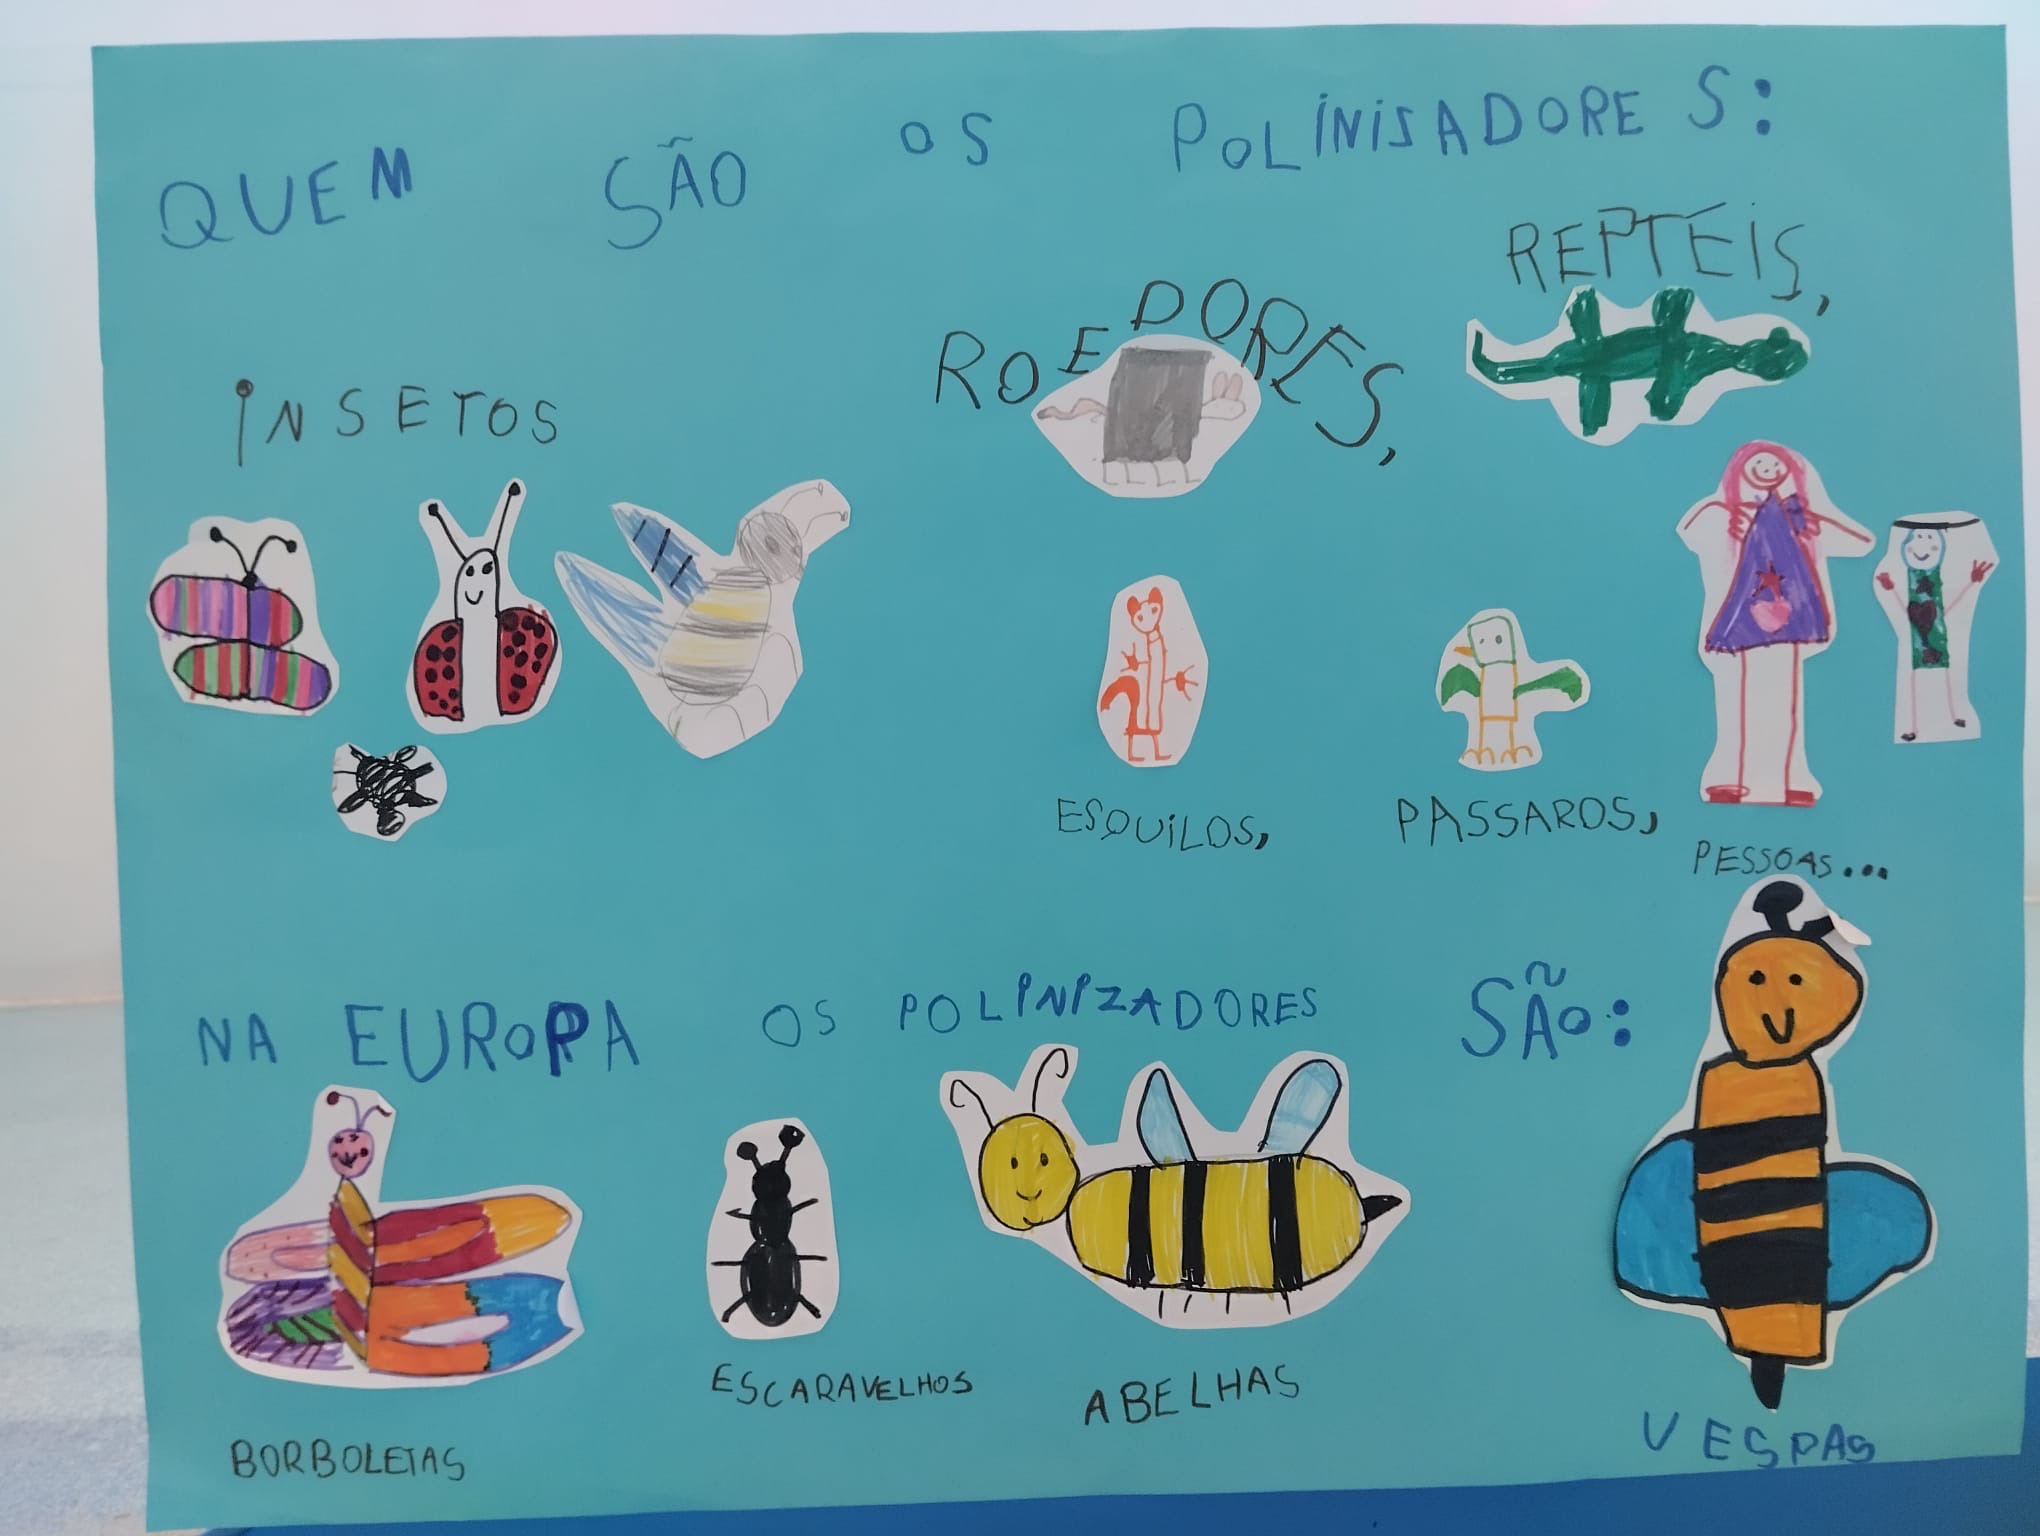 QUEM SÃO OS POLINISADORES:
INSETOS
ROEDORES,
REPTEIS,
ESQUILOS,
PASSAROS,
PESSOAS...
NA EUROPA OS POLINIZADORES SÃO:
BORBOLETAS
ESCARAVELHOS
ABELHAS
VESPAS